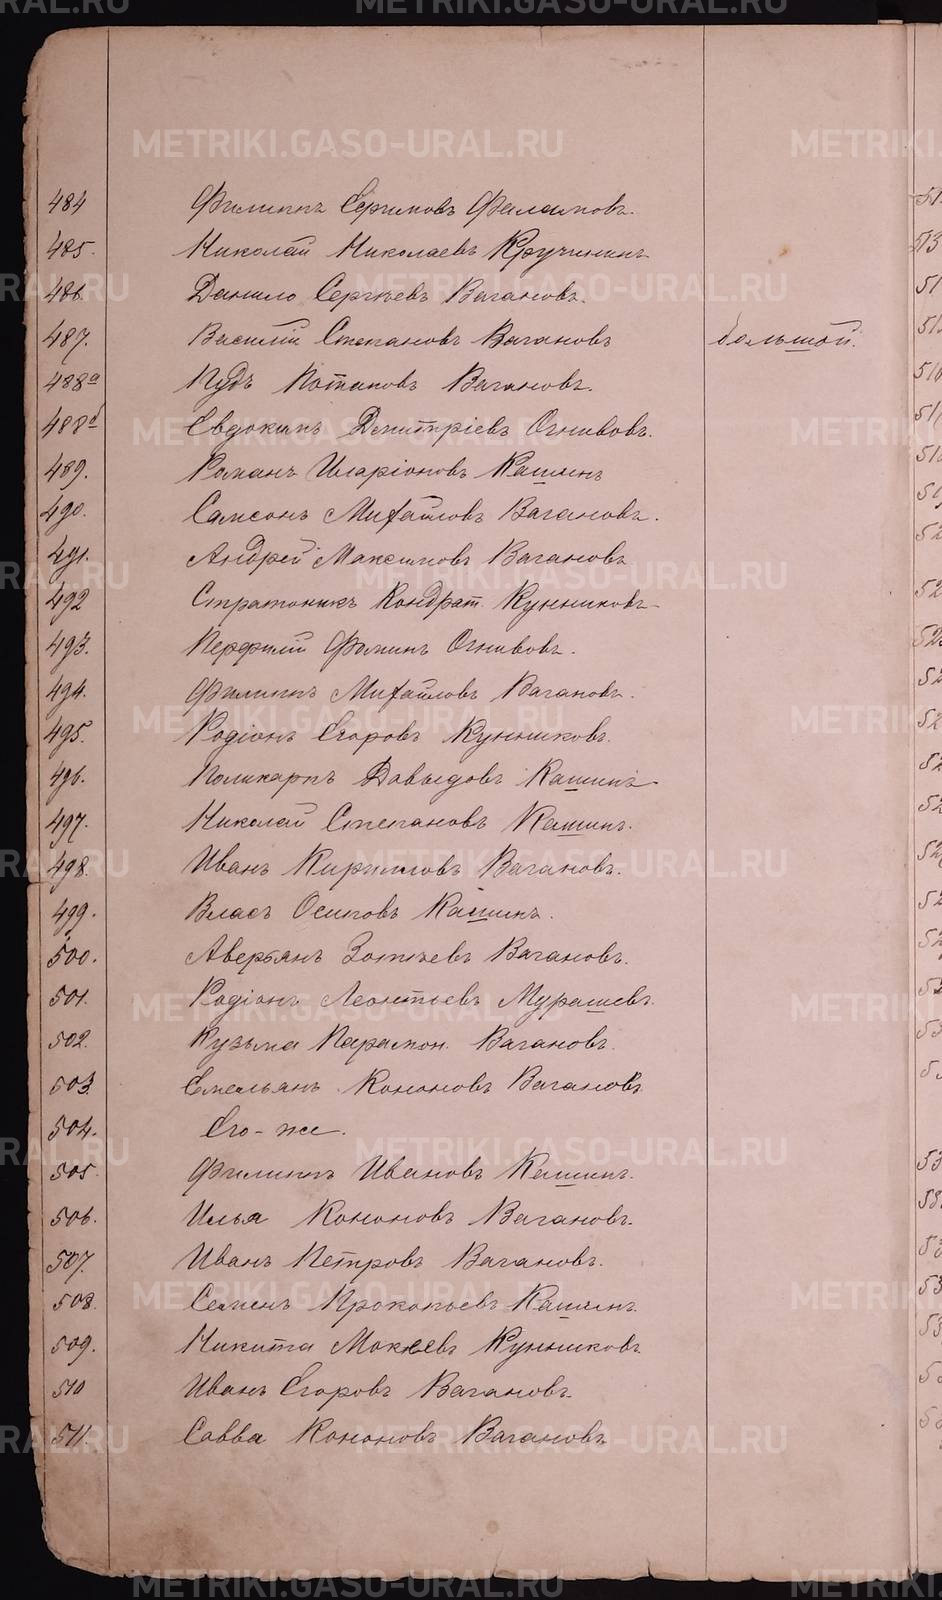 484 Филиппъ Ефимовъ Филимовъ.
485. Николай Николаевъ Кручининъ
486. Данило Сергѣевъ Вагановъ.
487. Василій Степановъ Вагановъ большой.
488а Пудъ Потаповъ Вагановъ.
488б Евдокимъ Дмитріевъ Огнивовъ.
489. Романъ Иларіоновъ Кашинъ
490. Самсонъ Михайловъ Вагановъ.
491. Андрей Максимовъ Вагановъ
492 Стратоникъ Кондрат. Кунниковъ
493. Перфилій Фоминъ Огнивовъ.
494. Филиппъ Михайловъ Вагановъ.
495. Родіонъ Егоровъ Кунниковъ.
496. Поликарпъ Давыдовъ Кашинъ
497. Николай Степановъ Кашинъ.
498. Иванъ Кирилловъ Вагановъ.
499. Власъ Осиповъ Кашинъ.
500. Аверьянъ Зотѣевъ Вагановъ.
501. Родіонъ Леонтьевъ Мурашевъ.
502. Кузьма Парамон. Вагановъ.
503. Емельянъ Кононовъ Вагановъ
504. Его-же.
505. Филиппъ Ивановъ Кашинъ.
506. Илья Кононовъ Вагановъ.
507. Иванъ Петровъ Вагановъ.
508. Семенъ Прокопьевъ Кашинъ
509. Никита Мокѣевъ Кунниковъ
510 Иванъ Егоровъ Вагановъ
511. Савва Кононовъ Вагановъ
METRIKI.GASO-URAL.RU